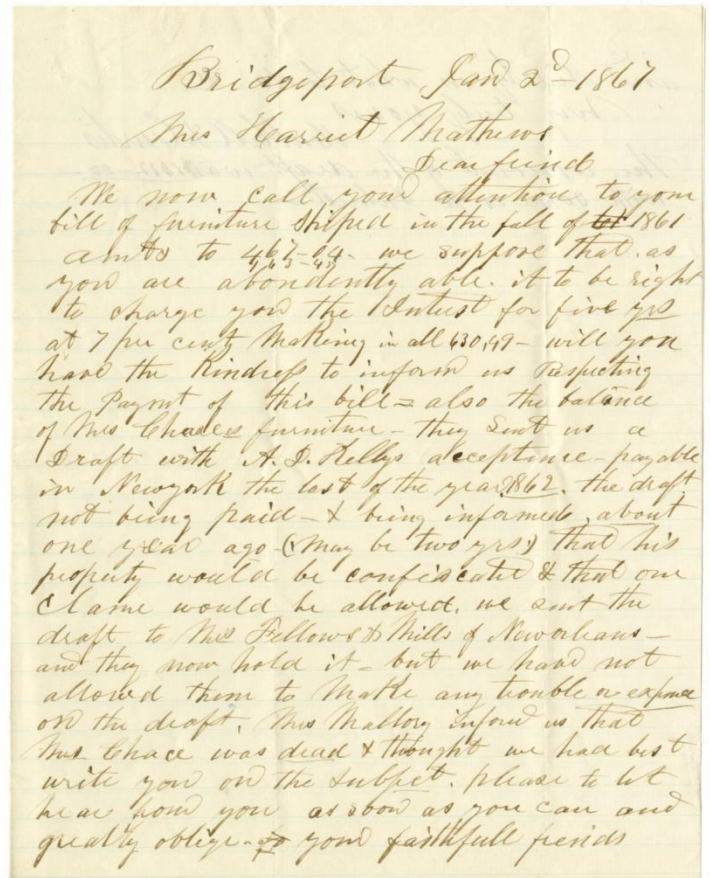 Bridgeport Jan 2d - 1867
Mrs Harriet Mathews
Dear friend
We now call your attention to your
bill of furniture Shiped in the fall of 1861
amts to 467-04- we suppose that as
you are abondently able. it to be right
to charge you the Intust for five yrs
at 7 per cent, Making in all 630,49 - will you
have the Kindness to inform us Respecting
the Paymt of this bill = also the balance
of Mrs Chaces furniture - they Sent us a
Draft with A. D. Kellys acceptince - payable
in Newyork the last of the year 1862. the draft
not being paid - & being informed, about
one year ago - (May be two yrs) that his
property would be confiscated & that our
Clame would be allowed. we sent the
draft to Fellows & Mills of Neworleans -
and they now hold it - but we have not
allowed them to Make any trouble or expence
on the draft. Mrs Mallory Infornd us that
Mrs Chace was dead & thought we had best
write you on the Subject. please to let
hear from you as soon as you can and
greatly oblige - your faithfull friends